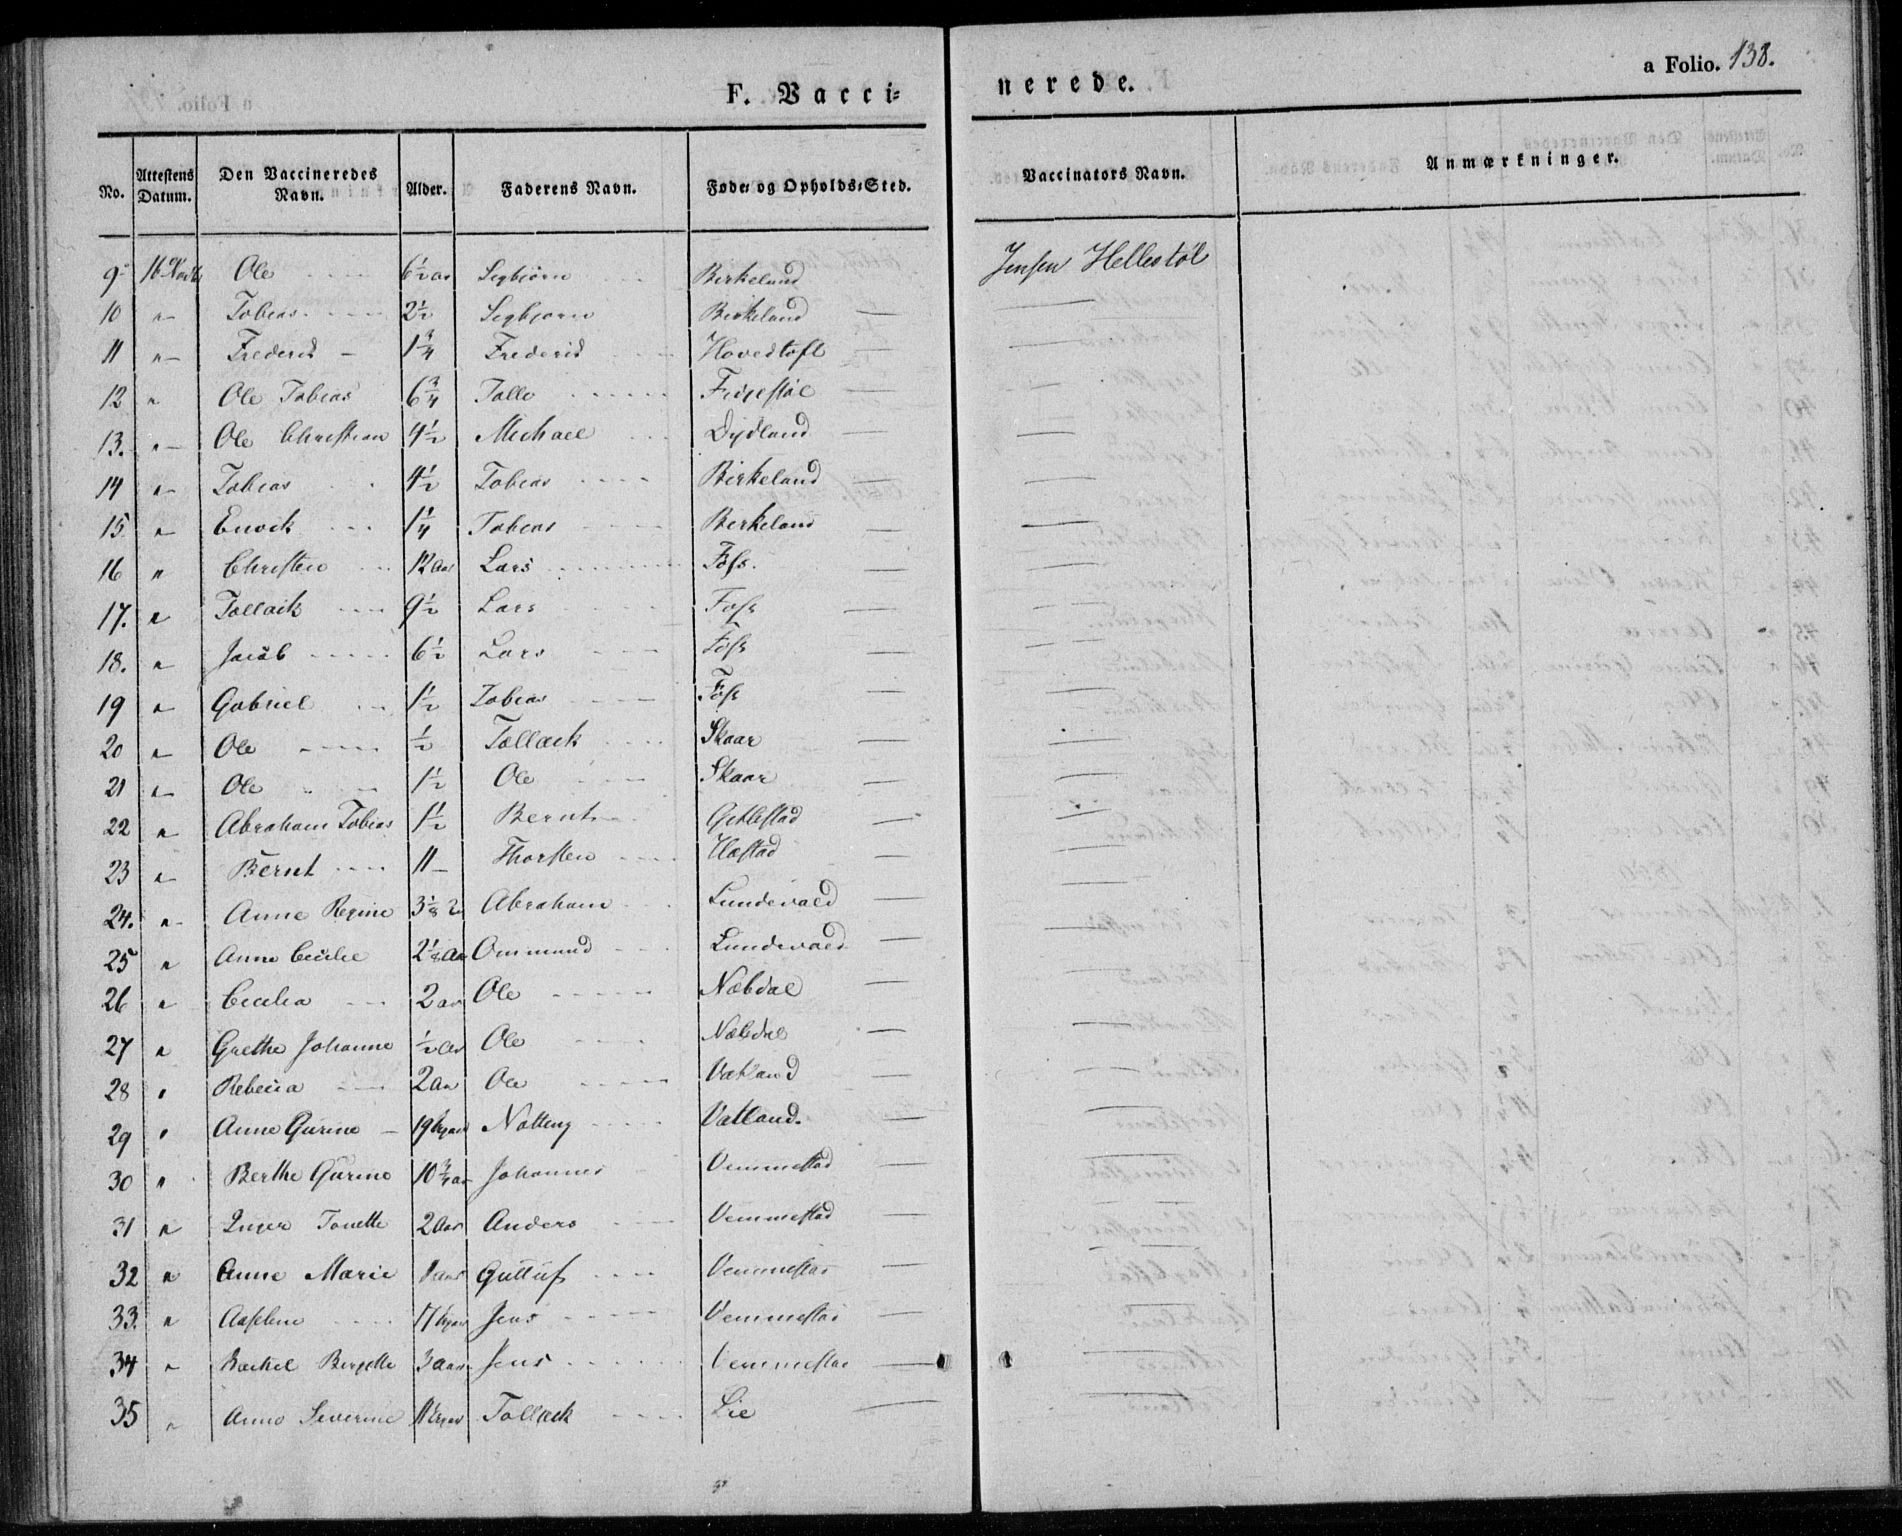 a Folio. 138.
F. Vacci=
nerede.
No. Attestens Datum. Den Vaccineredes Navn. Alder. Faderens Navn. Føde= og Opholds=Sted. Vaccinators Navn. Anmærkninger.
9 16 Ole 6½ aar Birkeland Jensen Hellestøl
10 " Tobias 2½ Birkeland
11 " Frederik 1¾ Frederik Hovedtoft
12 " Ole Tobias 6¾ Talle
13. " Ole Christian 4½ Michael Dydland
14 " Tobias 4½ Tobias Birkeland
15 " Enock 1¼ Tobias Birkeland
16 " Christen 12 aar Lars Foss.
17. " Tallack 9½ Lars Foss
18. " Jacob 6½ Lars Foss
19 " Gabriel 1½ Tobias Foss
20 " Ole ½ Tallack Skaar
21 " Ole 1½ Ole Skaar
22 " Abraham Tobias 1½ Bernt Gitlestad
23 " Bernt 11 Thorsten
24. " Anne Regine 3⅛ Abraham Lundevold
25 " Anne Cecilie 2⅛ aar Ommund Lundevold
26 " Cecilia 2 aar Ole Næbdal
27 " Grethe Johanne ½ aar Ole Næbdal
28 " Rebecca 2 aar Ole Vatland
29 " Anne Gurine 19 Vatland.
30 " Berthe Gurine 10¾ aar Johannes Vemmestad
31 " Inger Tonette 2 aar Anders Vemmestad
32 " Anne Marie aar Vemmestad
33. " 17 Jens Vemmestad
34 " Rachel 3 aar Jens Vemmestad
35 " Anne Severine 11 Tallack Lie